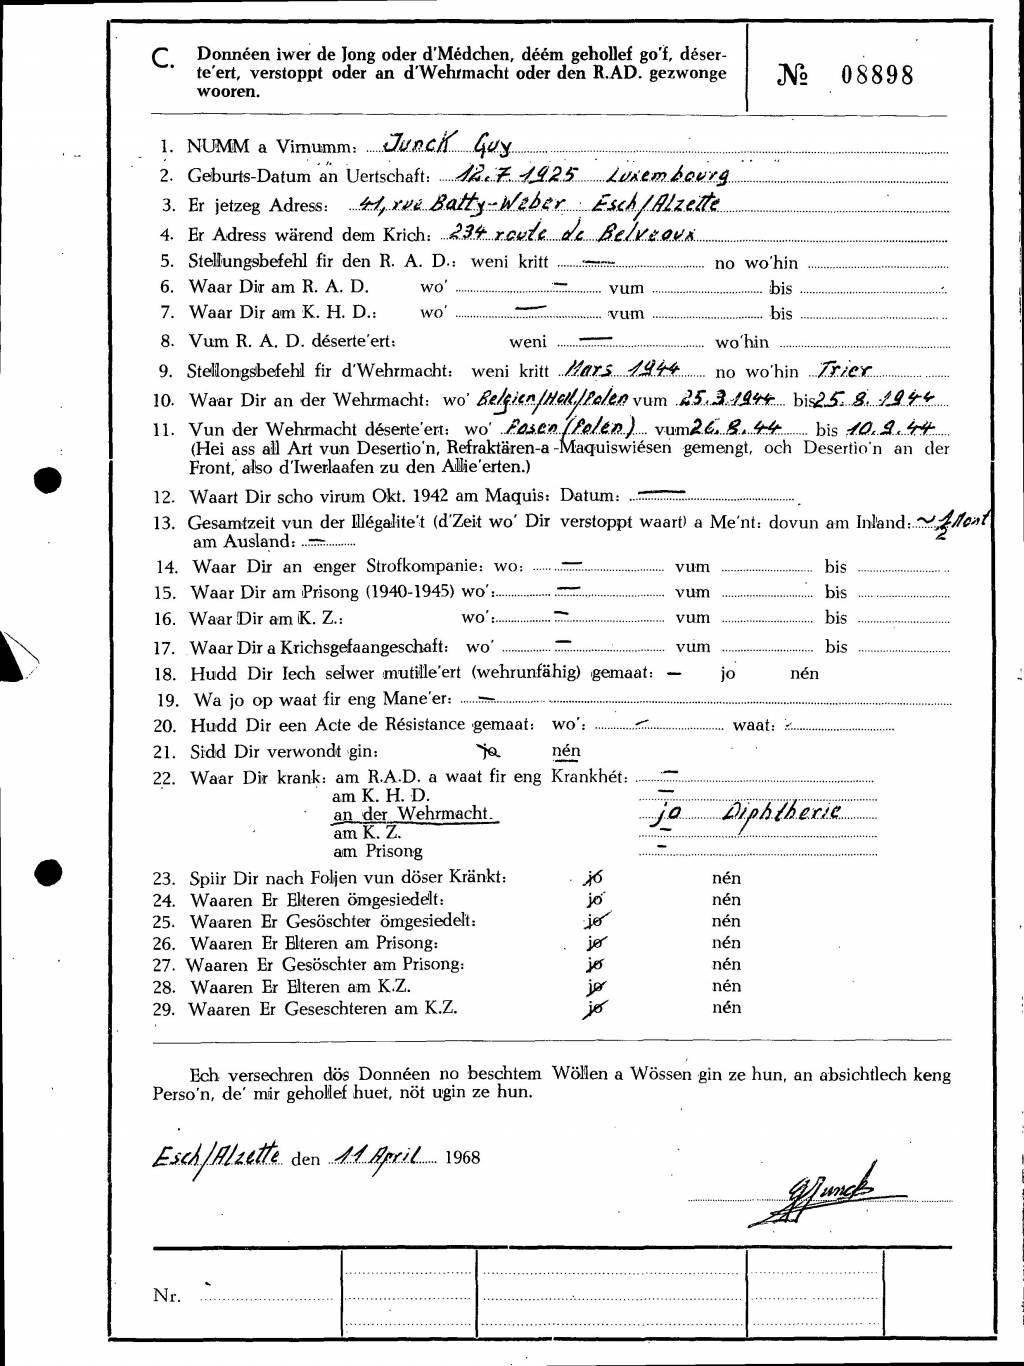 C. Donnéen iwer de Jong oder d'Médchen, déém gehollef go'f, déser-
te'ert, verstoppt oder an d'Wehrmacht oder den R.AD. gezwonge
wooren.
№ 08898
1. NUMM a Virnumm: Junck Guy
2. Geburts-Datum an Uertschaft: 12.7.1925 Luxembourg
3. Er jetzeg Adress: 41, rue Batty-Weber Esch/Alzette
4. Er Adress wärend dem Krich: 234 route de Belvaux
5. Stellungsbefehl fir den R. A. D.: weni kritt — no wo'hin
6. Waar Dir am R. A. D. wo' — vum bis
7. Waar Dir am K. H. D.: wo' — vum bis
8. Vum R. A. D. déserte'ert: weni — wo'hin
9. Stellongsbefehl fir d'Wehrmacht: weni kritt Mars 1944 no wo'hin Trier
10. Waar Dir an der Wehrmacht: wo' Belgien/Holl/Polen vum 25.3.1944 bis 25.8.1944
11. Vun der Wehrmacht déserte'ert: wo' Posen (Polen) vum 26.8.44 bis 10.9.44
(Hei ass all Art vun Desertio'n, Refraktären-a-Maquiswiésen gemengt, och Desertio'n an der
Front, also d'Iwerlaafen zu den Allie'erten.)
12. Waart Dir scho virum Okt. 1942 am Maquis: Datum: —
13. Gesamtzeit vun der Illégalite't (d'Zeit wo' Dir verstoppt waart) a Me'nt: dovun am Inland: ~ 1/2 Mont
am Ausland: —
14. Waar Dir an enger Strofkompanie: wo: — vum bis
15. Waar Dir am Prisong (1940-1945) wo': — vum bis
16. Waar Dir am K. Z.: wo': — vum bis
17. Waar Dir a Krichsgefaangeschaft: wo' — vum bis
18. Hudd Dir Iech selwer mutille'ert (wehrunfähig) gemaat: — jo nén
19. Wa jo op waat fir eng Mane'er: —
20. Hudd Dir een Acte de Résistance gemaat: wo': — waat: -
21. Sidd Dir verwondt gin: jo nén
22. Waar Dir krank: am R.A.D. a waat fir eng Krankhét: —
am K. H. D. —
an der Wehrmacht. jo Diphtherie
am K. Z. —
am Prisong -
23. Spiir Dir nach Foljen vun döser Kränkt: jo nén
24. Waaren Er Elteren ömgesiedelt: jo nén
25. Waaren Er Gesöschter ömgesiedelt: jo nén
26. Waaren Er Elteren am Prisong: jo nén
27. Waaren Er Gesöschter am Prisong: jo nén
28. Waaren Er Elteren am K.Z. jo nén
29. Waaren Er Geseschteren am K.Z. jo nén
Ech versechren dös Donnéen no beschtem Wöllen a Wössen gin ze hun, an absichtlech keng
Perso'n, de' mir gehollef huet, nöt ugin ze hun.
Esch/Alzette den 11 April 1968
GJunck
Nr.